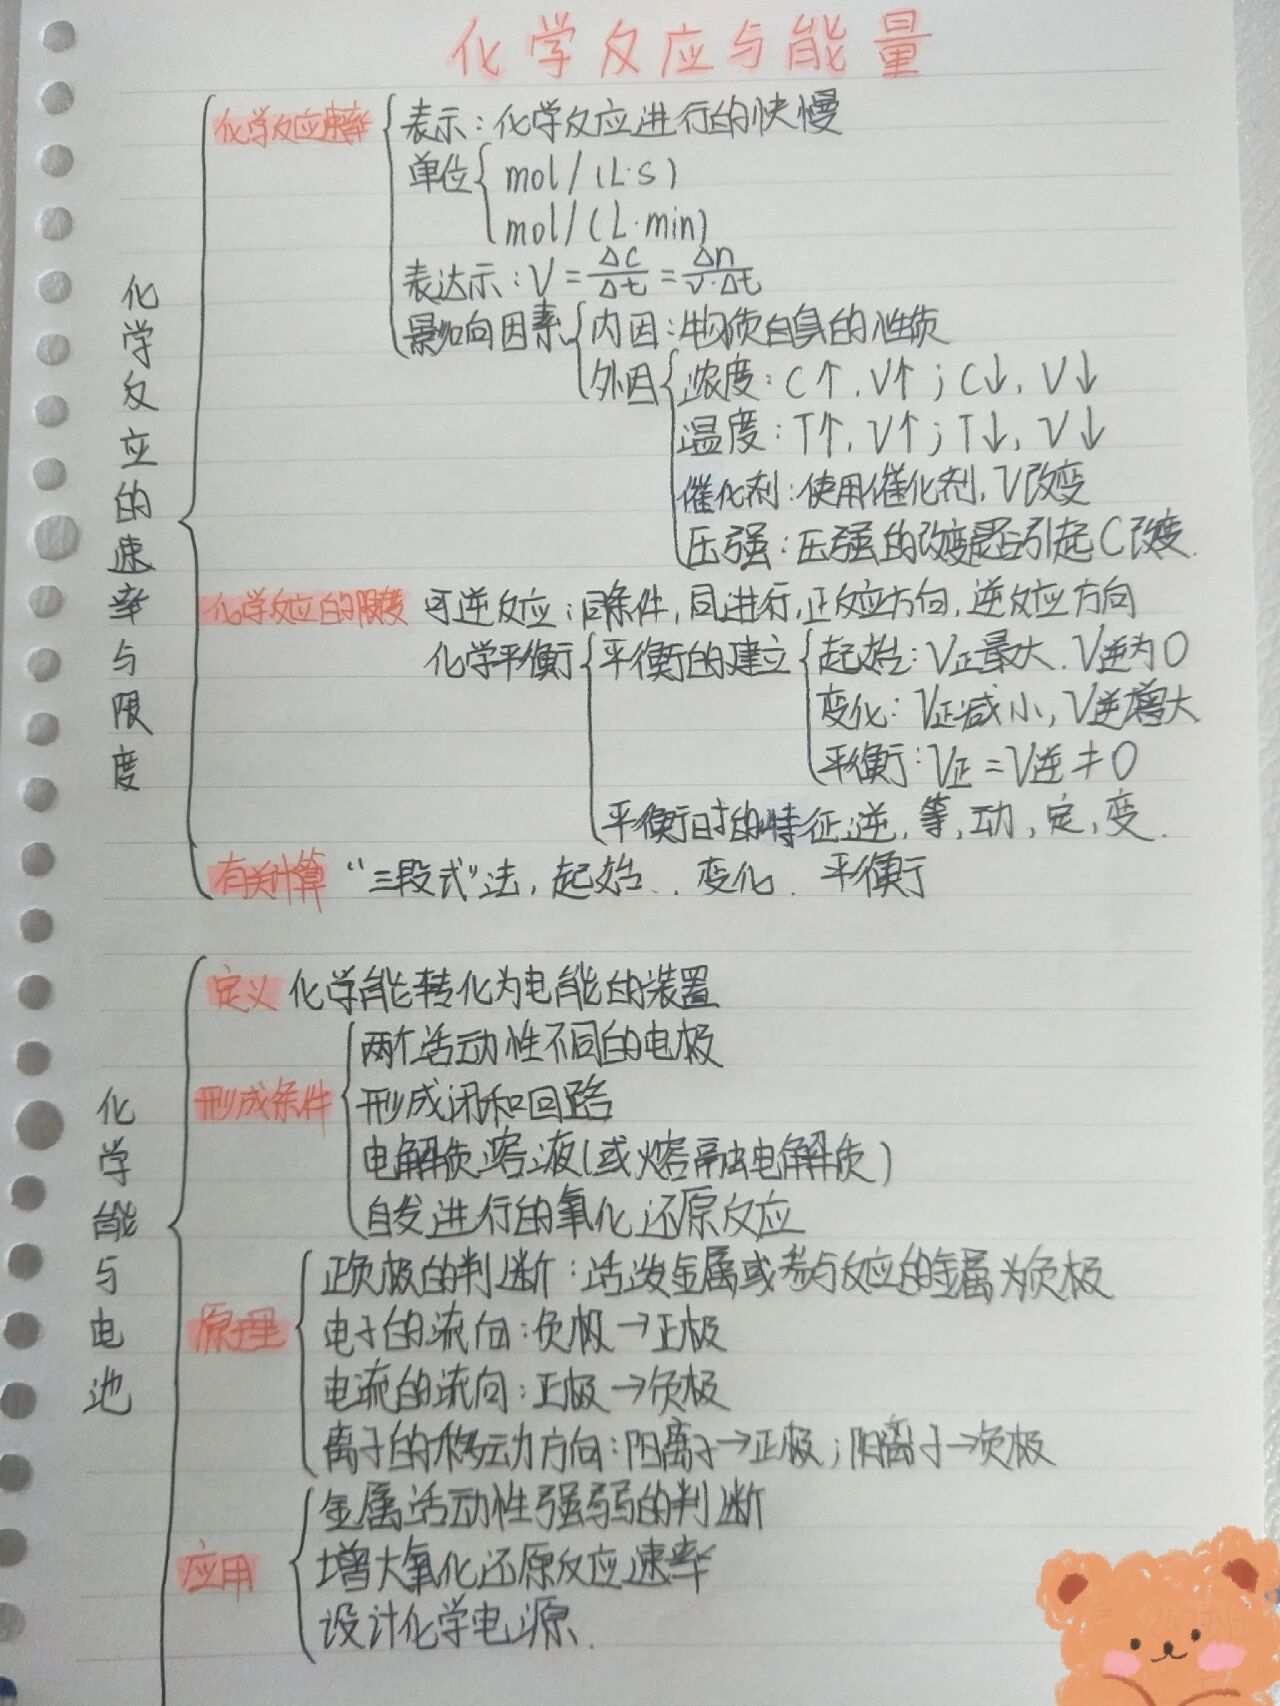 化学反应与能量
化学反应的速率与限度
化学反应速率
表示：化学反应进行的快慢
单位 mol/(L·s)
mol/(L·min)
表达示：V=Δc/Δt=Δn/V·Δt
影响因素 内因：物质自身的性质
外因 浓度：C↑，V↑；C↓，V↓
温度：T↑，V↑；T↓，V↓
催化剂：使用催化剂，V改变
压强：压强的改变是否引起C改变.
化学反应的限度 可逆反应：同条件，同进行，正反应方向，逆反应方向
化学平衡 平衡的建立 起始：V正最大，V逆为0
变化：V正减小，V逆增大
平衡：V正=V逆≠0
平衡时的特征：逆，等，动，定，变.
有关计算 “三段式”法，起始、变化、平衡
化学能与电池
定义 化学能转化为电能的装置
形成条件
两个活动性不同的电极
形成闭和回路
电解质溶液(或熔融电解质)
自发进行的氧化还原反应
原理
正负极的判断：活泼金属或参与反应的金属为负极
电子的流向：负极→正极
电流的流向：正极→负极
离子的移动方向：阳离子→正极；阴离子→负极
应用
金属活动性强弱的判断
增大氧化还原反应速率
设计化学电源.